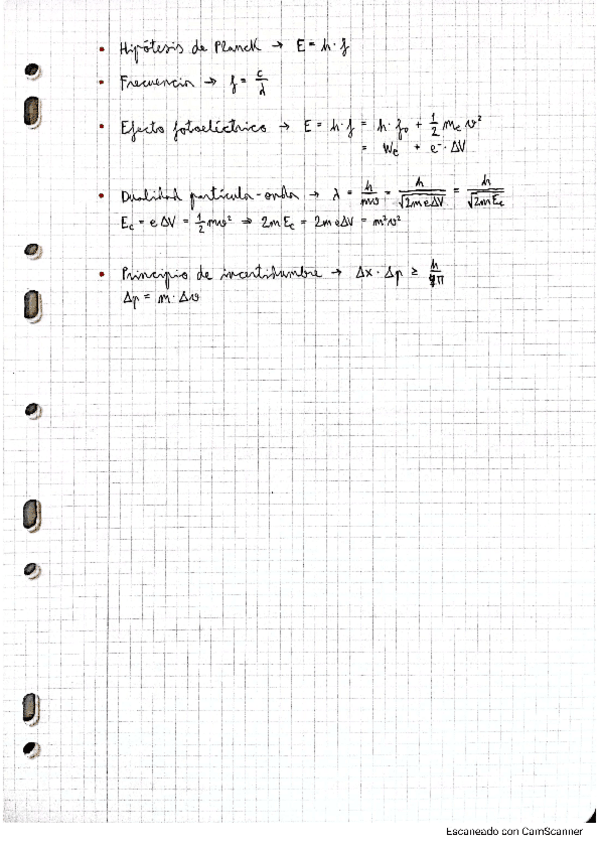 • Hipótesis de Planck → E = h · f
• Frecuencia → f = c/λ
• Efecto fotoeléctrico → E = h · f = h · f₀ + 1/2 mₑ v²
= We + e⁻ · ΔV
• Dualidad partícula-onda → λ = h/mv = h/√2meΔV = h/√2mEc
Ec = eΔV = 1/2 mv² ⇒ 2mEc = 2meΔV = m²v²
• Principio de incertidumbre → Δx · Δp ≥ h/4π
Δp = m · Δv
Escaneado con CamScanner